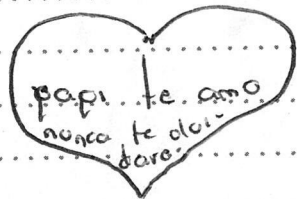 papi te amo
nunca te doli-
daro